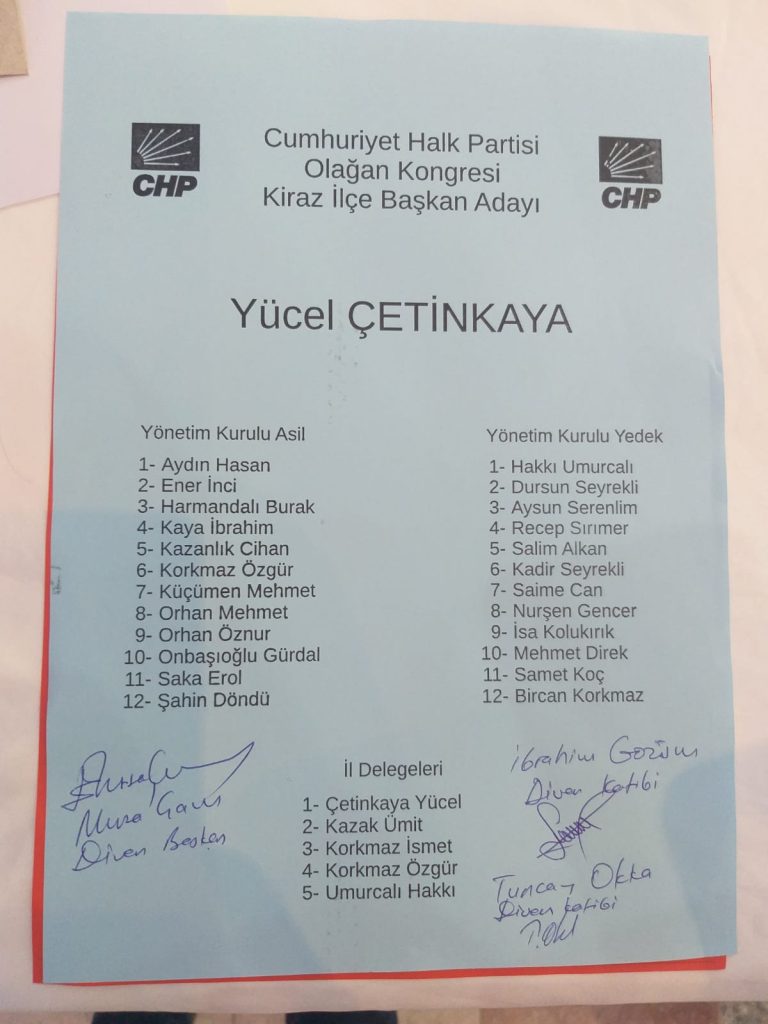 CHP
Cumhuriyet Halk Partisi
Olağan Kongresi
Kiraz İlçe Başkan Adayı
CHP
Yücel ÇETİNKAYA
Yönetim Kurulu Asil
1- Aydın Hasan
2- Ener İnci
3- Harmandalı Burak
4- Kaya İbrahim
5- Kazanlık Cihan
6- Korkmaz Özgür
7- Küçümen Mehmet
8- Orhan Mehmet
9- Orhan Öznur
10- Onbaşıoğlu Gürdal
11- Saka Erol
12- Şahin Döndü
Yönetim Kurulu Yedek
1- Hakkı Umurcalı
2- Dursun Seyrekli
3- Aysun Serenlim
4- Recep Sırımer
5- Salim Alkan
6- Kadir Seyrekli
7- Saime Can
8- Nurşen Gencer
9- İsa Kolukırık
10- Mehmet Direk
11- Samet Koç
12- Bircan Korkmaz
İl Delegeleri
1- Çetinkaya Yücel
2- Kazak Ümit
3- Korkmaz İsmet
4- Korkmaz Özgür
5- Umurcalı Hakkı
Divan Başkan
İbrahim
Divan Katibi
Tuncay Okka
Divan Katibi